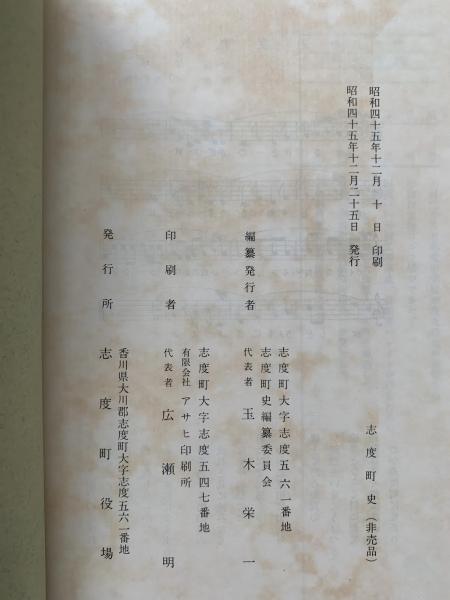 昭和四十五年十二月 十 日 印刷
昭和四十五年十二月二十五日 発行
志度町史(非売品)
編纂発行者
志度町大字志度五六一番地
志度町史編纂委員会
代表者 玉木栄一
印刷者
志度町大字志度五四七番地
有限会社 アサヒ印刷所
代表者 広瀬明
発行所
香川県大川郡志度町大字志度五六一番地
志度町役場